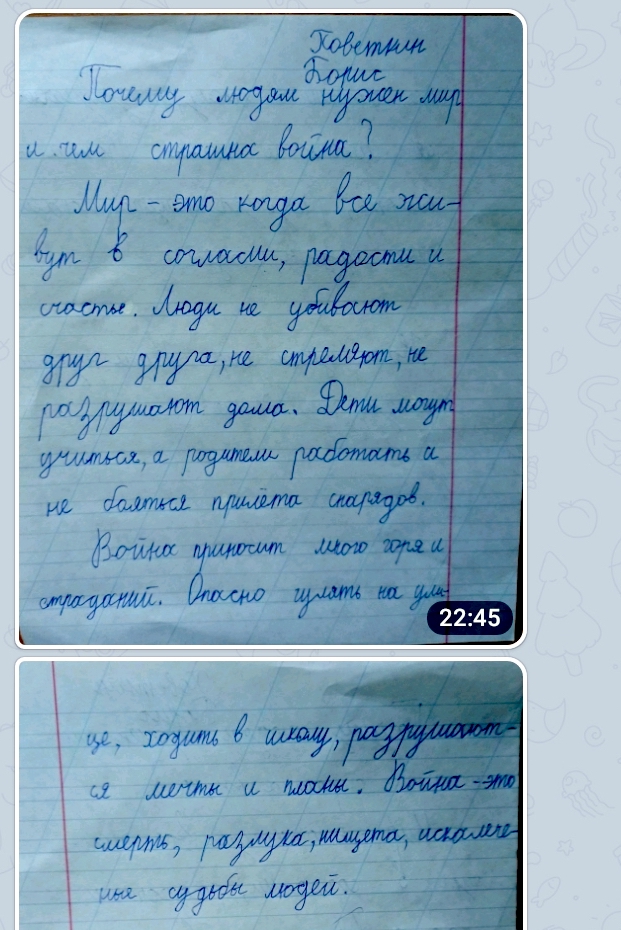 Поветкин
Борис
Почему людям нужен мир
и чем страшна война?
Мир – это когда все жи-
вут в согласии, радости и
счастье. Люди не убивают
друг друга, не стреляют, не
разрушают дома. Дети могут
учиться, а родители работать и
не бояться прилёта снарядов.
Война приносит много горя и
страданий. Опасно гулять на ули-
22:45
це, ходить в школу, разрушают-
ся мечты и планы. Война – это
смерть, разлука, нищета, искалече-
ные судьбы людей.